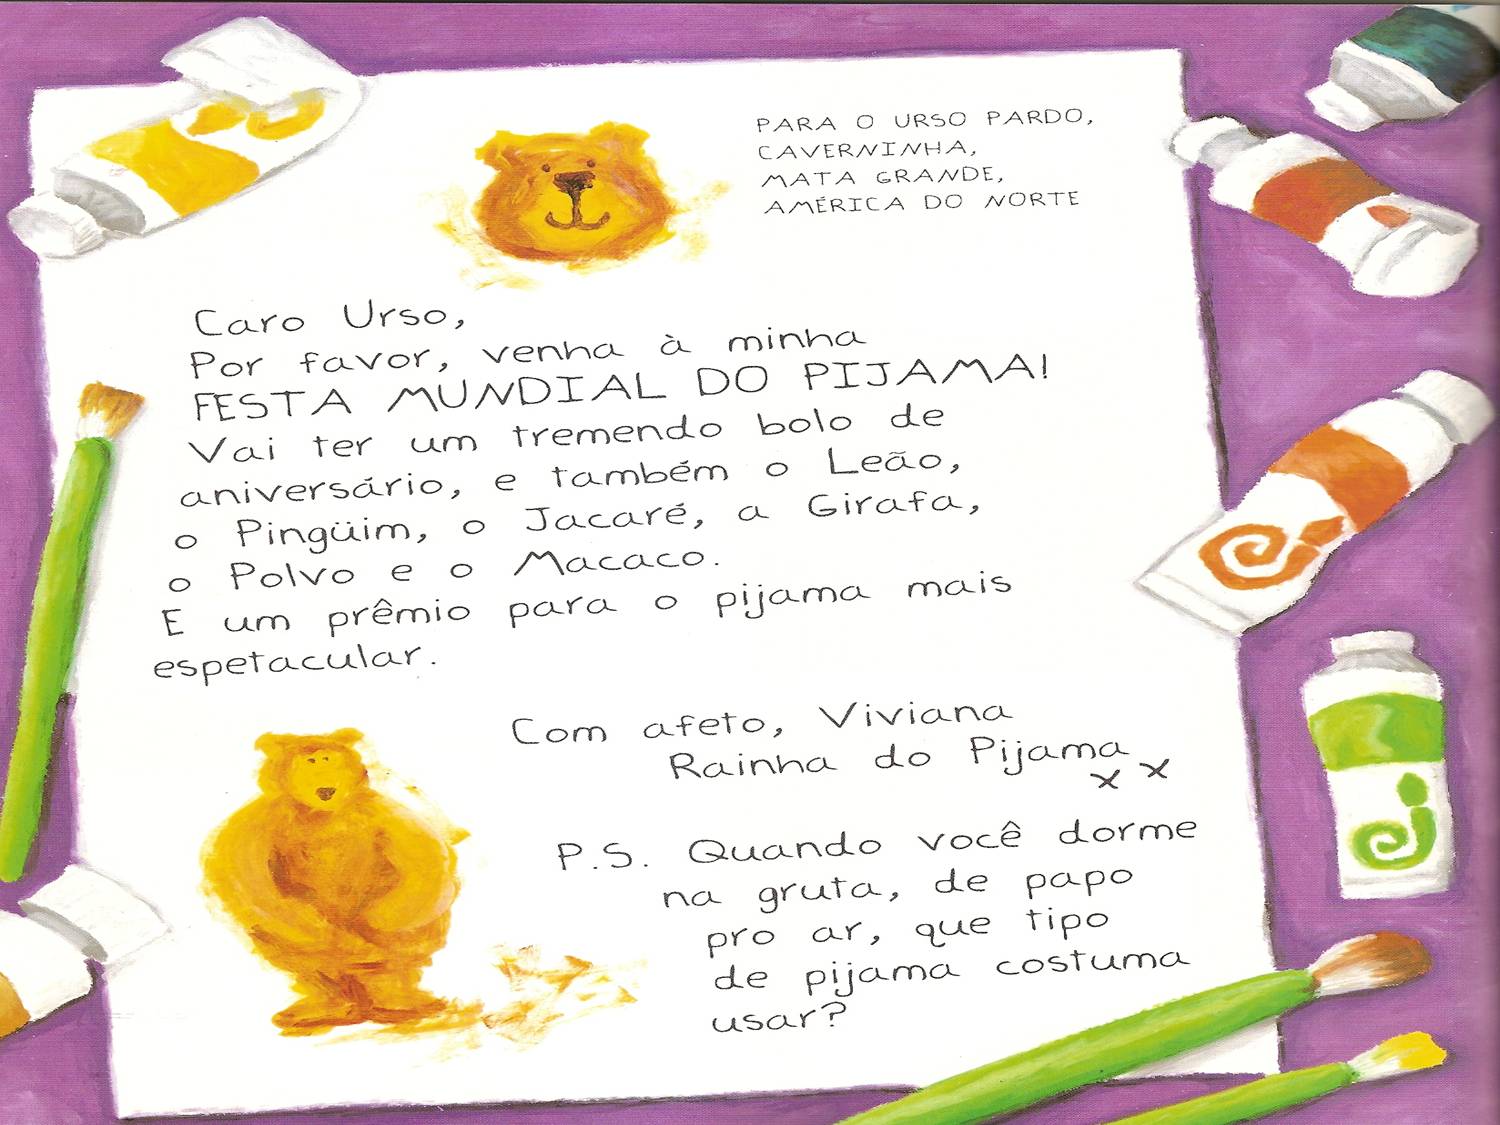 PARA O URSO PARDO,
CAVERNINHA,
MATA GRANDE,
AMÉRICA DO NORTE
Caro Urso,
Por favor, venha à minha
FESTA MUNDIAL DO PIJAMA!
Vai ter um tremendo bolo de
aniversário, e também o Leão,
o Pingüim, o Jacaré, a Girafa,
o Polvo e o Macaco.
E um prêmio para o pijama mais
espetacular.
Com afeto, Viviana
Rainha do Pijama
x x
P.S. Quando você dorme
na gruta, de papo
pro ar, que tipo
de pijama costuma
usar?